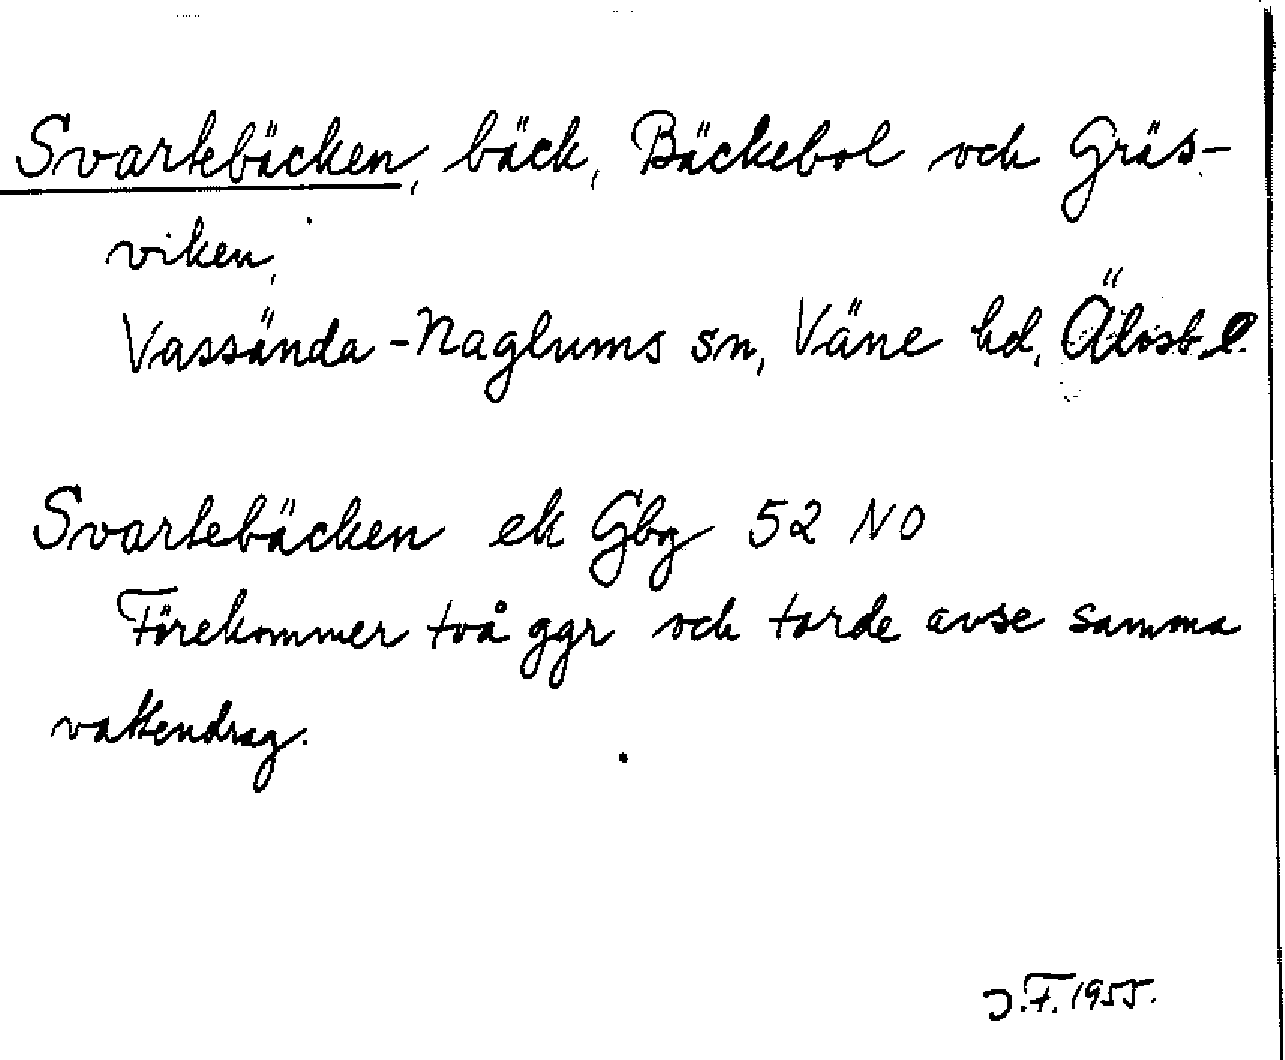 Svartebäcken, bäck, Bäckebol och Gräs-
viken,
Vassända-Naglums sn, Väne hd, Älvsb. l.
Svartebäcken ek Gbg 52 NO
Förekommer två ggr och torde avse samma
vattendrag.
J.F. 1955.